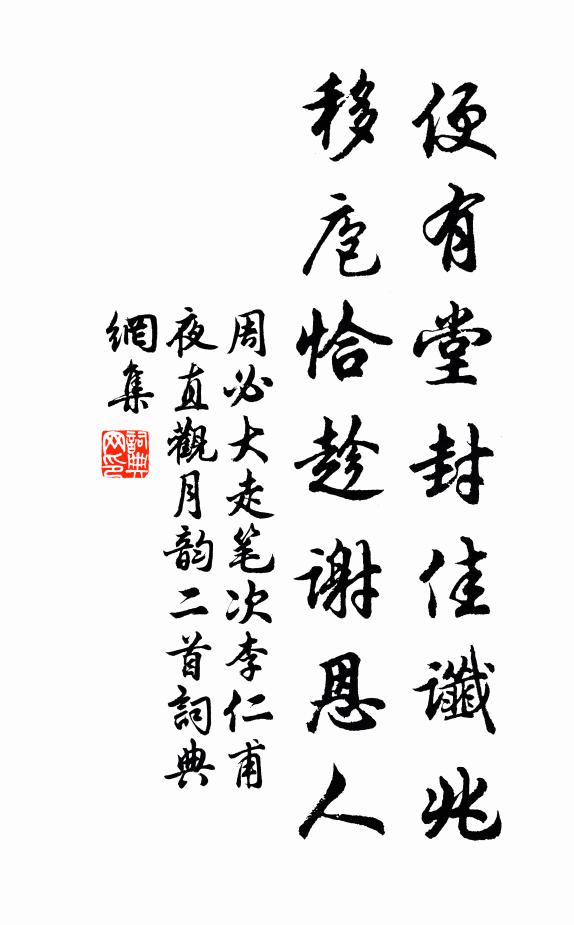 便有堂封佳讖兆
移庖恰趁谢恩人
周必大走笔次李仁甫
夜直觀月韵二首詞典
網集
詞典网印